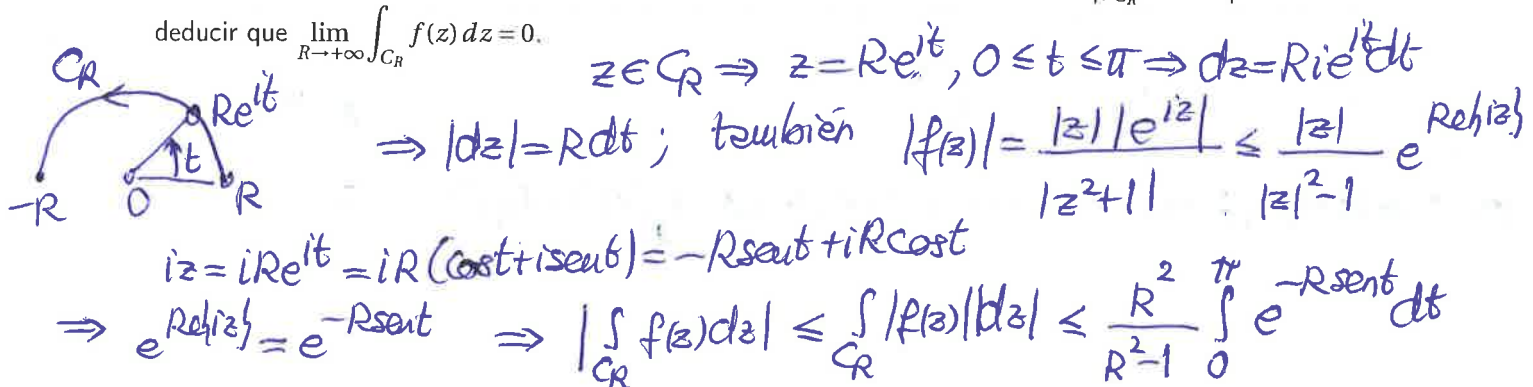 deducir que lim_{R→+∞} ∫_{C_R} f(z) dz = 0.
z ∈ C_R ⇒ z = Re^{it}, 0 ≤ t ≤ π ⇒ dz = Rie^{it}dt
C_R
Re^{it}
t
-R 0 R
⇒ |dz| = Rdt ; también |f(z)| = |z| |e^{iz}| / |z²+1| ≤ |z| / (|z|²-1) e^{Re{iz}}
iz = iRe^{it} = iR(cost+isent) = -Rsent+iRcost
⇒ e^{Re{iz}} = e^{-Rsent} ⇒ |∫_{C_R} f(z)dz| ≤ ∫_{C_R} |f(z)||dz| ≤ R²/(R²-1) ∫_0^π e^{-Rsent} dt